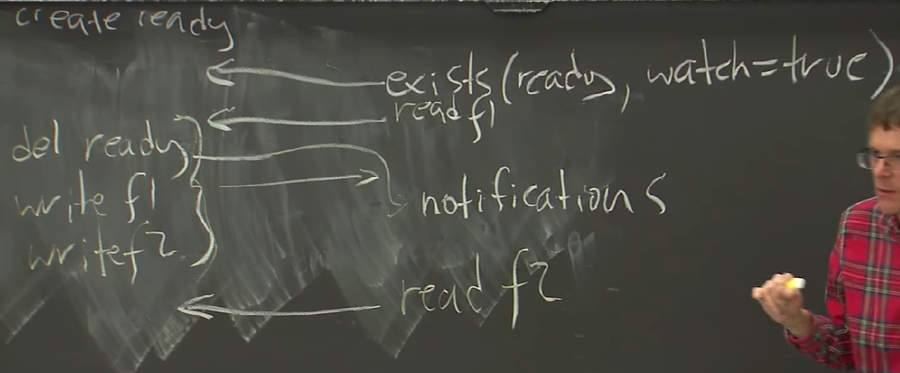 create ready
exists(ready, watch=true)
read f1
del ready
write f1
notifications
write f2
read f2